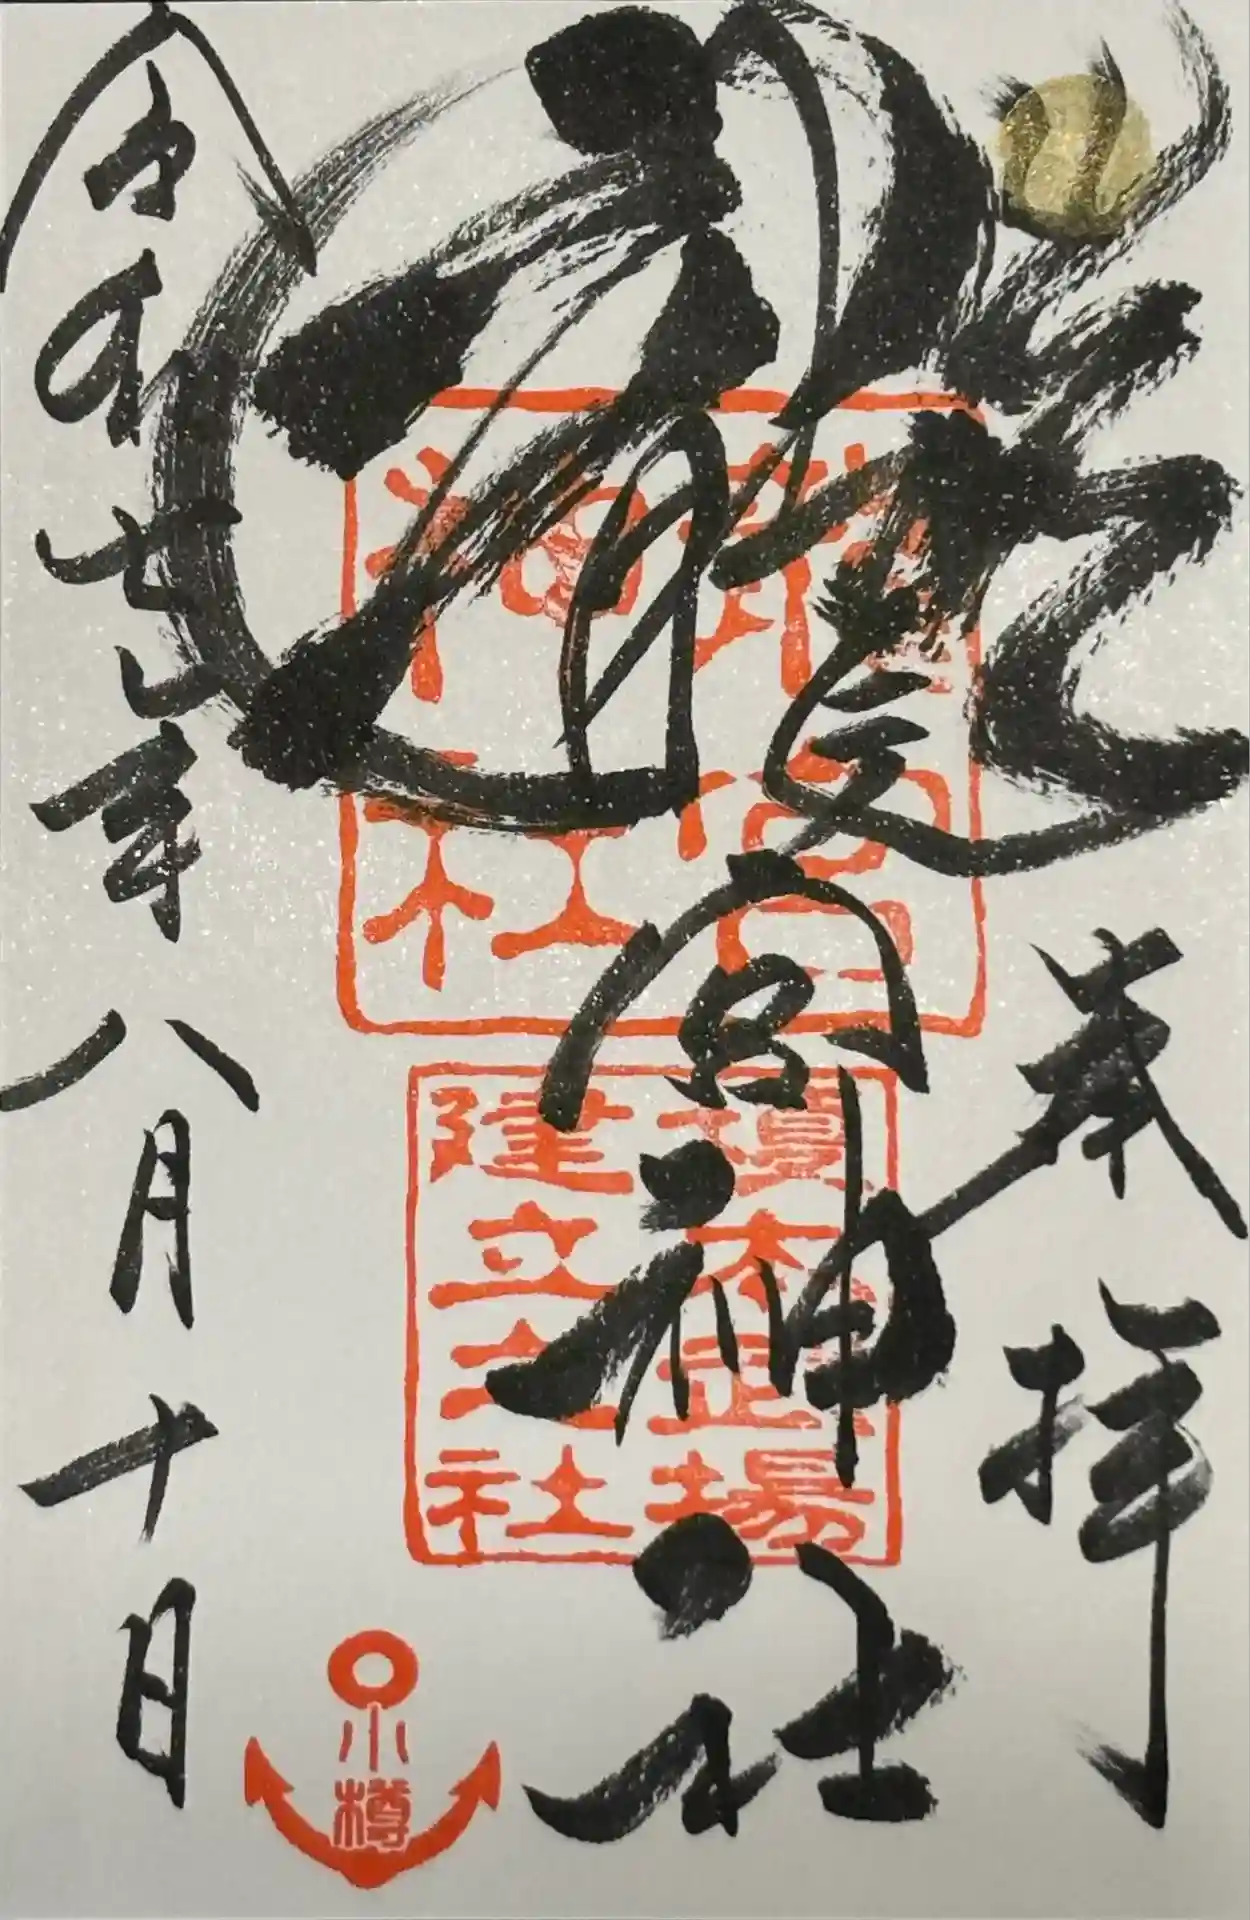 奉拝
龍宮神社
令和七年八月十日
龍宮
神社
榎本武揚
建立之社
小樽